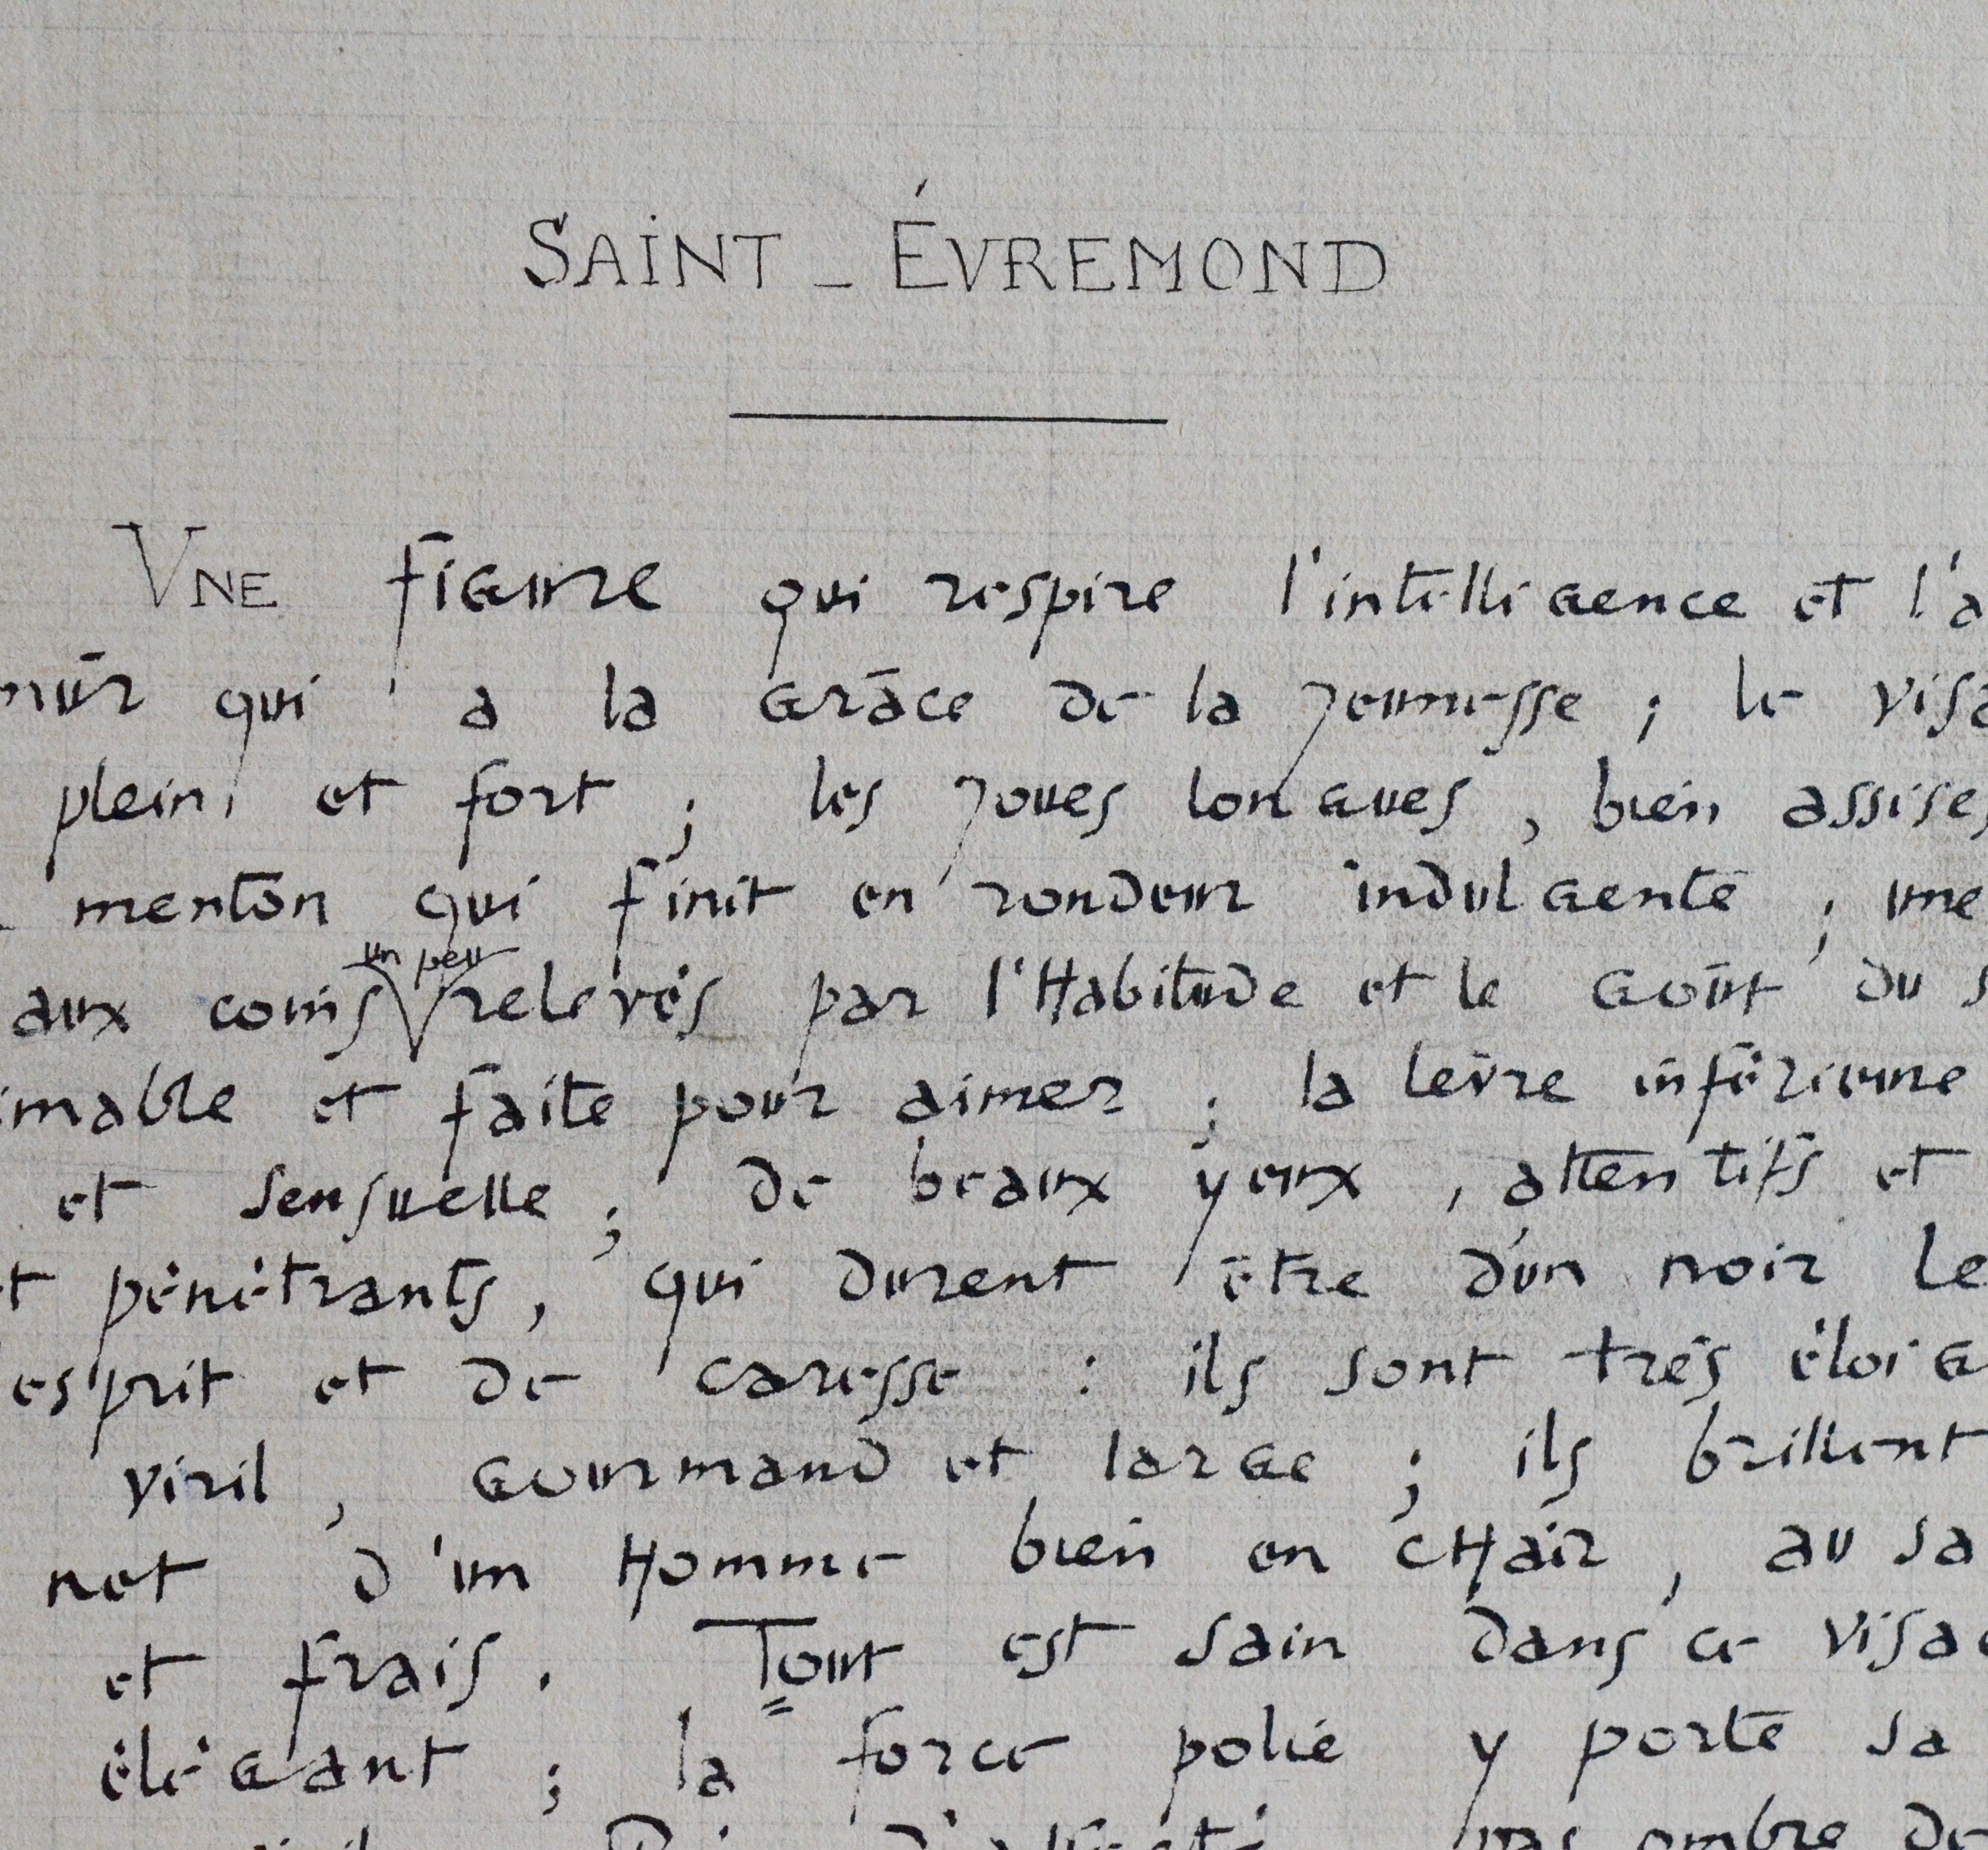 SAINT-ÉVREMOND
VNE figure qui respire l'intelligence et l'a
mûr qui a la grâce de la jeunesse ; le visa
plein et fort ; les joues longues, bien assises
menton qui finit en rondeur indulgente ; une
un peu
aux coins relevés par l'habitude et le goût du s
imable et faite pour aimer ; la lèvre inférieure
et sensuelle ; de beaux yeux, attentifs et
et pénétrants, qui durent être d'un noir le
esprit et de caresse : ils sont très éloig
viril, gourmand et large ; ils brillent
net d'un homme bien en chair, au sa
et frais. Tout est sain dans ce visag
élégant ; la force polie y porte sa
pas ombre de